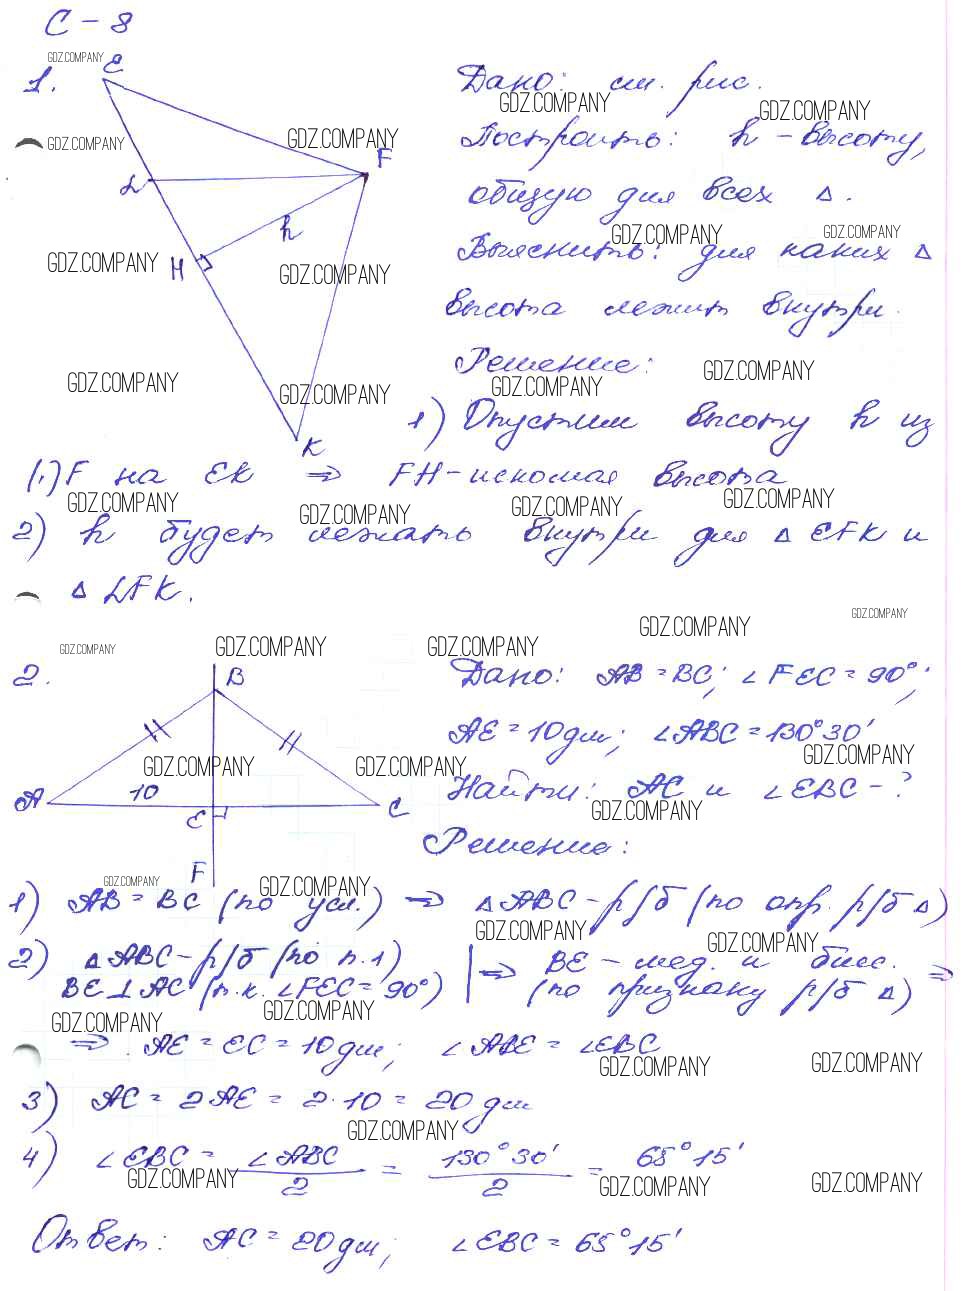 С - 8
1.
E
F
L
h
H
K
Дано: см. рис.
Построить: h - высоту,
общую для всех Δ.
Выяснить: для каких Δ
высота лежит внутри.
Решение:
1) Опустим высоту h из
(.) F на EK ⇒ FH - искомая высота
2) h будет лежать внутри для Δ EFK и
Δ LFK.
2.
B
A
10
E
C
F
Дано: AB = BC; ∠FEC = 90°;
AE = 10 дм; ∠ABC = 130°30'
Найти: AC и ∠EBC - ?
Решение:
1) AB = BC (по усл.) ⇒ Δ ABC - р/б (по опр. р/б Δ)
2) Δ ABC - р/б (по п.1) | ⇒ BE - мед. и бисс. ⇒
BE ⊥ AC (т.к. ∠FEC = 90°) | (по признаку р/б Δ)
⇒ AE = EC = 10 дм; ∠ABE = ∠EBC
3) AC = 2AE = 2·10 = 20 дм
4) ∠EBC = ∠ABC/2 = 130°30'/2 = 65°15'
Ответ: AC = 20 дм; ∠EBC = 65°15'
GDZ.COMPANY